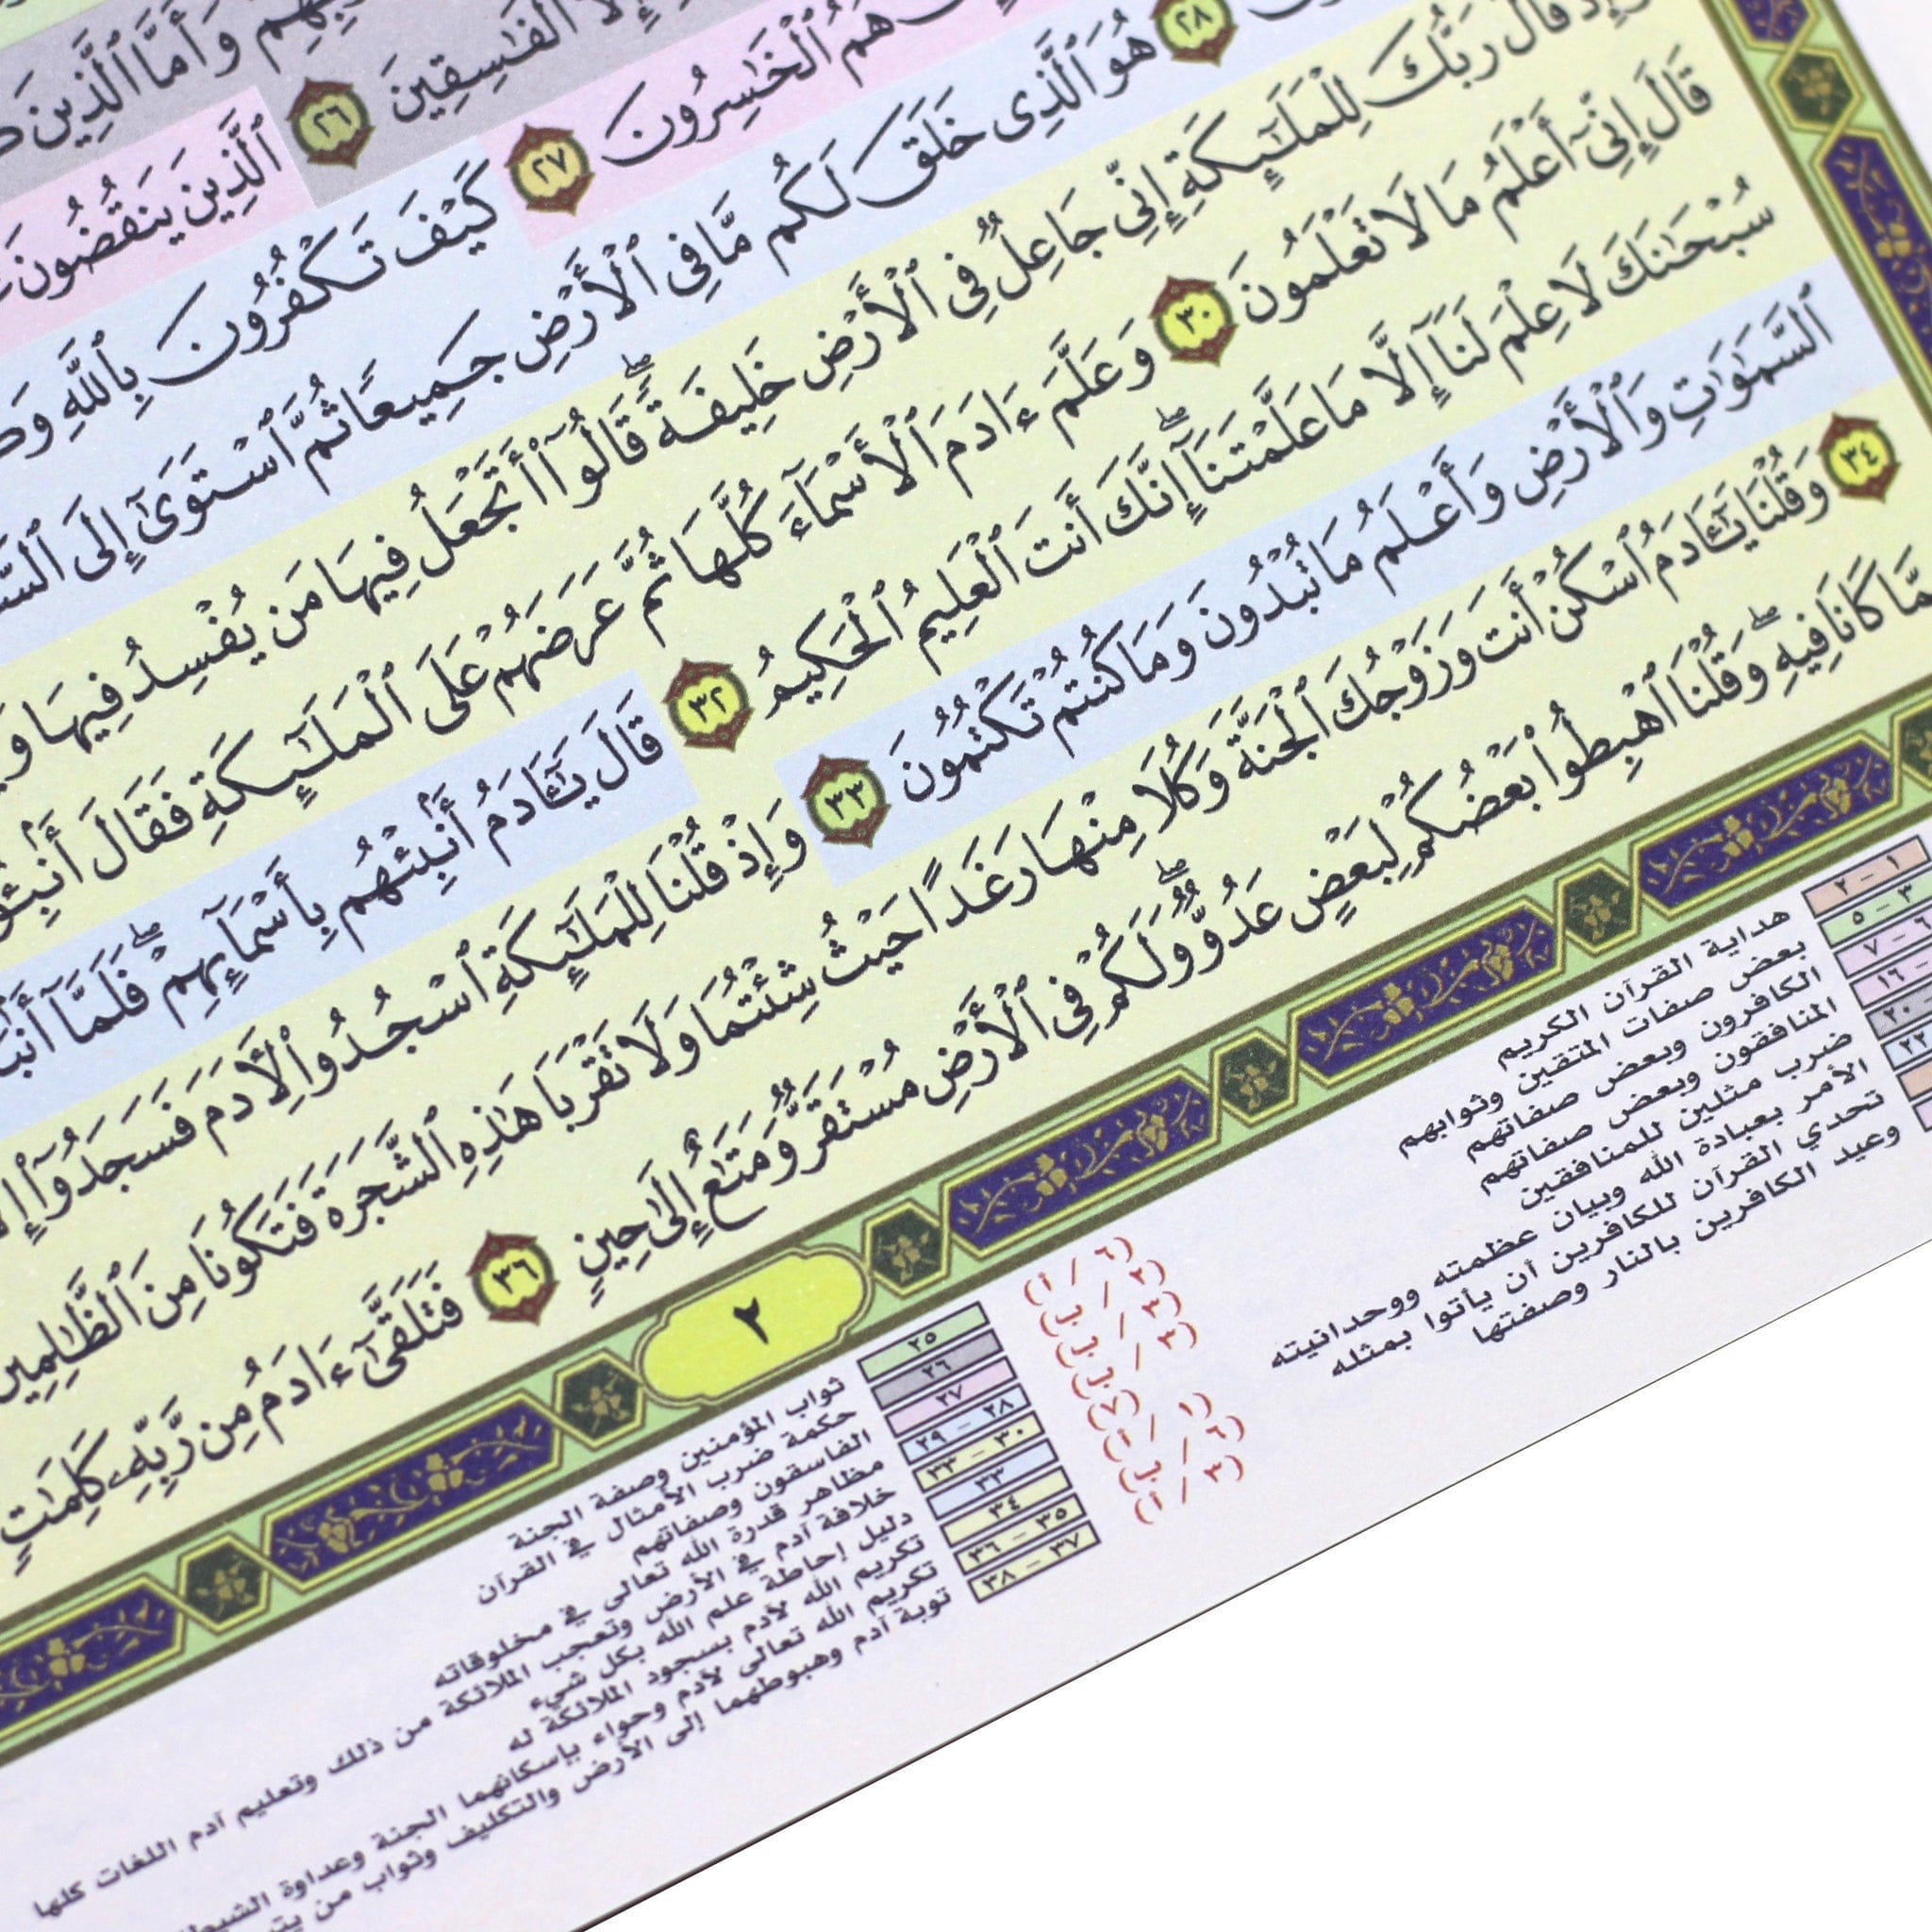 بِهِمْ وَأَمَّا ٱلَّذِينَ
إِلَّا ٱلْفَٰسِقِينَ ٢٦ ٱلَّذِينَ يَنقُضُونَ
هُمُ ٱلْخَٰسِرُونَ ٢٧ كَيْفَ تَكْفُرُونَ بِٱللَّهِ
٢٨ هُوَ ٱلَّذِى خَلَقَ لَكُم مَّا فِى ٱلْأَرْضِ جَمِيعًا ثُمَّ ٱسْتَوَىٰٓ إِلَى
وَإِذْ قَالَ رَبُّكَ لِلْمَلَٰٓئِكَةِ إِنِّى جَاعِلٌ فِى ٱلْأَرْضِ خَلِيفَةً ۖ قَالُوٓا۟ أَتَجْعَلُ فِيهَا مَن يُفْسِدُ فِيهَا
قَالَ إِنِّىٓ أَعْلَمُ مَا لَا تَعْلَمُونَ ٣٠ وَعَلَّمَ ءَادَمَ ٱلْأَسْمَآءَ كُلَّهَا ثُمَّ عَرَضَهُمْ عَلَى ٱلْمَلَٰٓئِكَةِ فَقَالَ
سُبْحَٰنَكَ لَا عِلْمَ لَنَآ إِلَّا مَا عَلَّمْتَنَآ ۖ إِنَّكَ أَنتَ ٱلْعَلِيمُ ٱلْحَكِيمُ ٣٢ قَالَ يَٰٓـَٔادَمُ أَنۢبِئْهُم بِأَسْمَآئِهِمْ ۖ فَلَمَّآ
ٱلسَّمَٰوَٰتِ وَٱلْأَرْضِ وَأَعْلَمُ مَا تُبْدُونَ وَمَا كُنتُمْ تَكْتُمُونَ ٣٣ وَإِذْ قُلْنَا لِلْمَلَٰٓئِكَةِ ٱسْجُدُوا۟ لِـَٔادَمَ فَسَجَدُوٓا۟
٣٤ وَقُلْنَا يَٰٓـَٔادَمُ ٱسْكُنْ أَنتَ وَزَوْجُكَ ٱلْجَنَّةَ وَكُلَا مِنْهَا رَغَدًا حَيْثُ شِئْتُمَا وَلَا تَقْرَبَا هَٰذِهِ ٱلشَّجَرَةَ فَتَكُونَا مِنَ ٱلظَّٰلِمِينَ
مِمَّا كَانَا فِيهِ ۖ وَقُلْنَا ٱهْبِطُوا۟ بَعْضُكُمْ لِبَعْضٍ عَدُوٌّ ۖ وَلَكُمْ فِى ٱلْأَرْضِ مُسْتَقَرٌّ وَمَتَٰعٌ إِلَىٰ حِينٍ ٣٦ فَتَلَقَّىٰٓ ءَادَمُ مِن رَّبِّهِۦ كَلِمَٰتٍ
٢
١ – ٢ هداية القرآن الكريم
٣ – ٥ بعض صفات المتقين وثوابهم
٦ – ٧ الكافرون وبعض صفاتهم
– ١٦ المنافقون وبعض صفاتهم
٢٠ ضرب مثلين للمنافقين
٢٢ الأمر بعبادة الله وبيان عظمته ووحدانيته
تحدي القرآن للكافرين أن يأتوا بمثله
وعيد الكافرين بالنار وصفتها
٢٥ ثواب المؤمنين وصفة الجنة
٢٦ حكمة ضرب الأمثال في القرآن
٢٧ الفاسقون وصفاتهم
٢٨ – ٢٩ مظاهر قدرة الله تعالى في مخلوقاته
٣٠ – ٣٣ خلافة آدم في الأرض وتعجب الملائكة من ذلك وتعليم آدم اللغات كلها
٣٣ دليل إحاطة علم الله بكل شيء
٣٤ تكريم الله لآدم بسجود الملائكة له
٣٥ – ٣٦ تكريم الله تعالى لآدم وحواء بإسكانهما الجنة وعداوة
٣٧ – ٣٨ توبة آدم وهبوطهما إلى الأرض والتكليف وثواب من